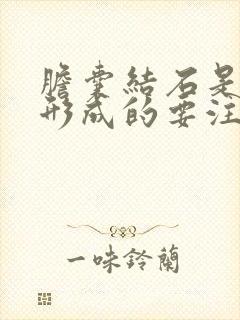 膽囊結石是
形成的要注
一味鈴蘭